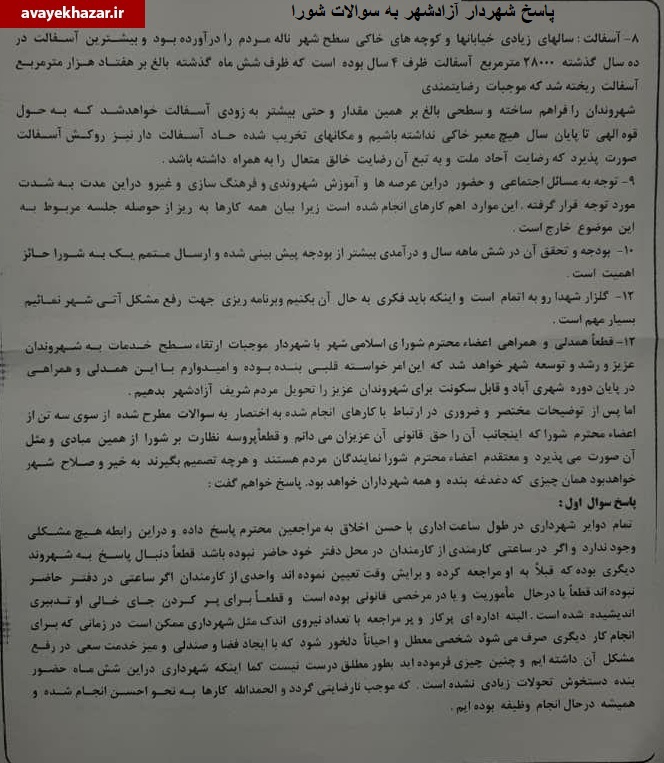 avayekhazar.ir
پاسخ شهردار آزادشهر به سوالات شورا
۸- آسفالت : سالهای زیادی خیابانها و کوچه های خاکی سطح شهر ناله مردم را درآورده بود و بیشترین آسفالت در
ده سال گذشته ۲۸۰۰۰ مترمربع آسفالت ظرف ۴ سال بوده است که ظرف شش ماه گذشته بالغ بر هفتاد هزار مترمربع
آسفالت ریخته شد که موجبات رضایتمندی
شهروندان را فراهم ساخته و سطحی بالغ بر همین مقدار و حتی بیشتر به زودی آسفالت خواهدشد که به حول
قوه الهی تا پایان سال هیچ معبر خاکی نداشته باشیم و مکانهای تخریب شده حاد آسفالت دار نیز روکش آسفالت
صورت پذیرد که رضایت آحاد ملت و به تبع آن رضایت خالق متعال را به همراه داشته باشد .
۹- توجه به مسائل اجتماعی و حضور دراین عرصه ها و آموزش شهروندی و فرهنگ سازی و غیرو دراین مدت به شدت
مورد توجه قرار گرفته . این موارد اهم کارهای انجام شده است زیرا بیان همه کارها به ریز از حوصله جلسه مربوط به
این موضوع خارج است .
۱۰- بودجه و تحقق آن در شش ماهه سال و درآمدی بیشتر از بودجه پیش بینی شده و ارسال متمم یک به شورا حائز
اهمیت است .
۱۲- گلزار شهدا رو به اتمام است و اینکه باید فکری به حال آن بکنیم وبرنامه ریزی جهت رفع مشکل آتی شهر نمائیم
بسیار مهم است .
۱۲- قطعاً همدلی و همراهی اعضاء محترم شورای اسلامی شهر با شهردار موجبات ارتقاء سطح خدمات به شهروندان
عزیز و رشد و توسعه شهر خواهد شد که این امر خواسته قلبی بنده بوده و امیدوارم با این همدلی و همراهی
در پایان دوره شهری آباد و قابل سکونت برای شهروندان عزیز را تحویل مردم شریف آزادشهر بدهیم .
اما پس از توضیحات مختصر و ضروری در ارتباط با کارهای انجام شده به اختصار به سوالات مطرح شده از سوی سه تن از
اعضاء محترم شورا که اینجانب آن را حق قانونی آن عزیزان می دانم و قطعاًپروسه نظارت بر شورا از همین مبادی و مثل
آن صورت می پذیرد و معتقدم اعضاء محترم شورا نمایندگان مردم هستند و هرچه تصمیم بگیرند به خیر و صلاح شهر
خواهدبود همان چیزی که دغدغه بنده و همه شهرداران خواهد بود. پاسخ خواهم گفت :
پاسخ سوال اول :
تمام دوایر شهرداری در طول ساعت اداری با حسن اخلاق به مراجعین محترم پاسخ داده و دراین رابطه هیچ مشکلی
وجود ندارد و اگر در ساعتی کارمندی از کارمندان در محل دفتر خود حاضر نبوده باشد قطعاً دنبال پاسخ به شهروند
دیگری بوده که قبلاً به او مراجعه کرده و برایش وقت تعیین نموده اند واحدی از کارمندان اگر ساعتی در دفتر حاضر
نبوده اند قطعاً یا درحال مأموریت و یا در مرخصی قانونی بوده است و قطعاً برای پر کردن جای خالی او تدبیری
اندیشیده شده است . البته اداره ای پرکار و پر مراجعه با تعداد نیروی اندک مثل شهرداری ممکن است در زمانی که برای
انجام کار دیگری صرف می شود شخصی معطل و احیاناً دلخور شود که با ایجاد فضا و صندلی و میز خدمت سعی در رفع
مشکل آن داشته ایم و چنین چیزی فرموده اید بطور مطلق درست نیست کما اینکه شهرداری دراین شش ماه حضور
بنده دستخوش تحولات زیادی نشده است . که موجب نارضایتی گردد و الحمدالله کارها به نحو احسن انجام شده و
همیشه درحال انجام وظیفه بوده ایم .